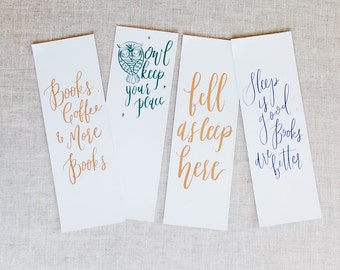 Books
Coffee
& More
Books
owl
keep
your
peace
fell
asleep
here
Sleep
is
good
Books
are
better